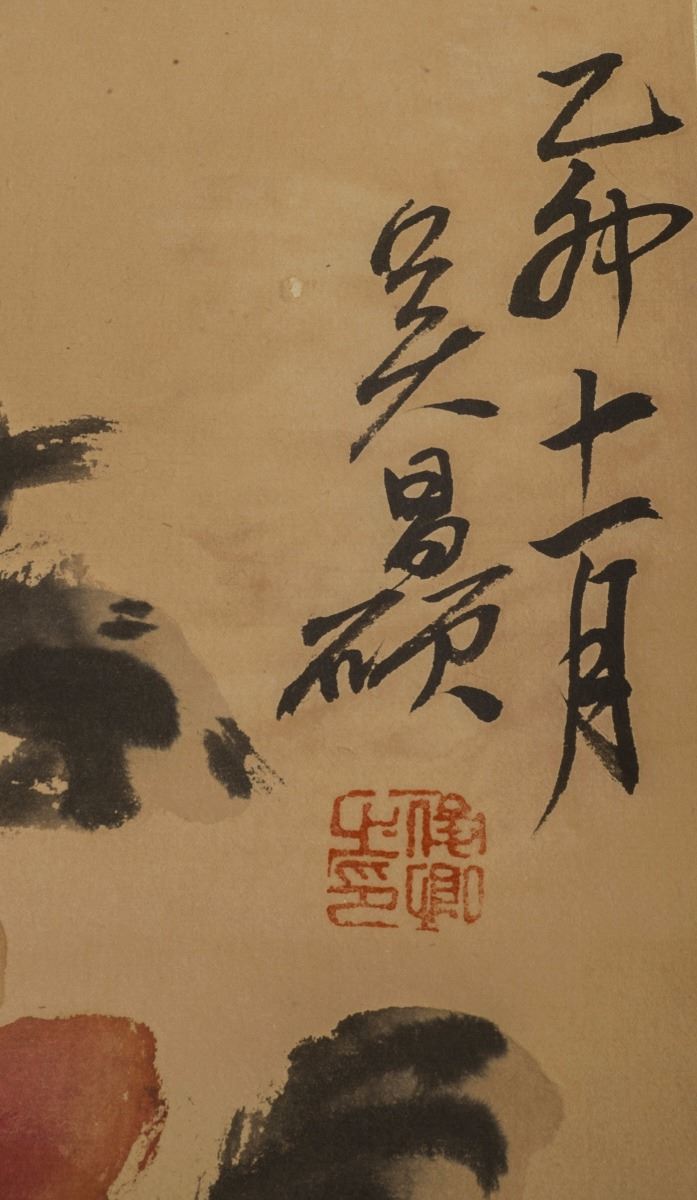 乙卯十一月
吴昌硕
俊卿之印